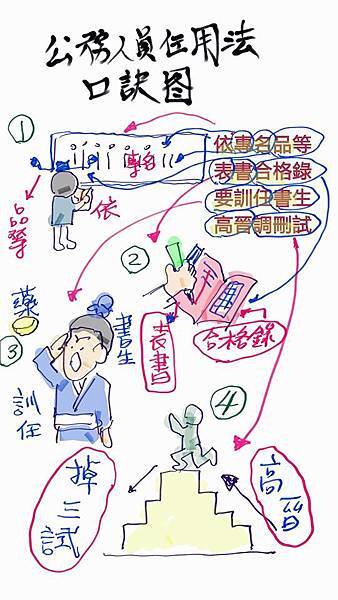 公務人員任用法
口訣图
依專名品等
表書合格錄
要訓任書生
高晉調刪試
①
專名
品等
依
②
表書
合格錄
③
藥
書生
訓任
④
掉三試
高晉